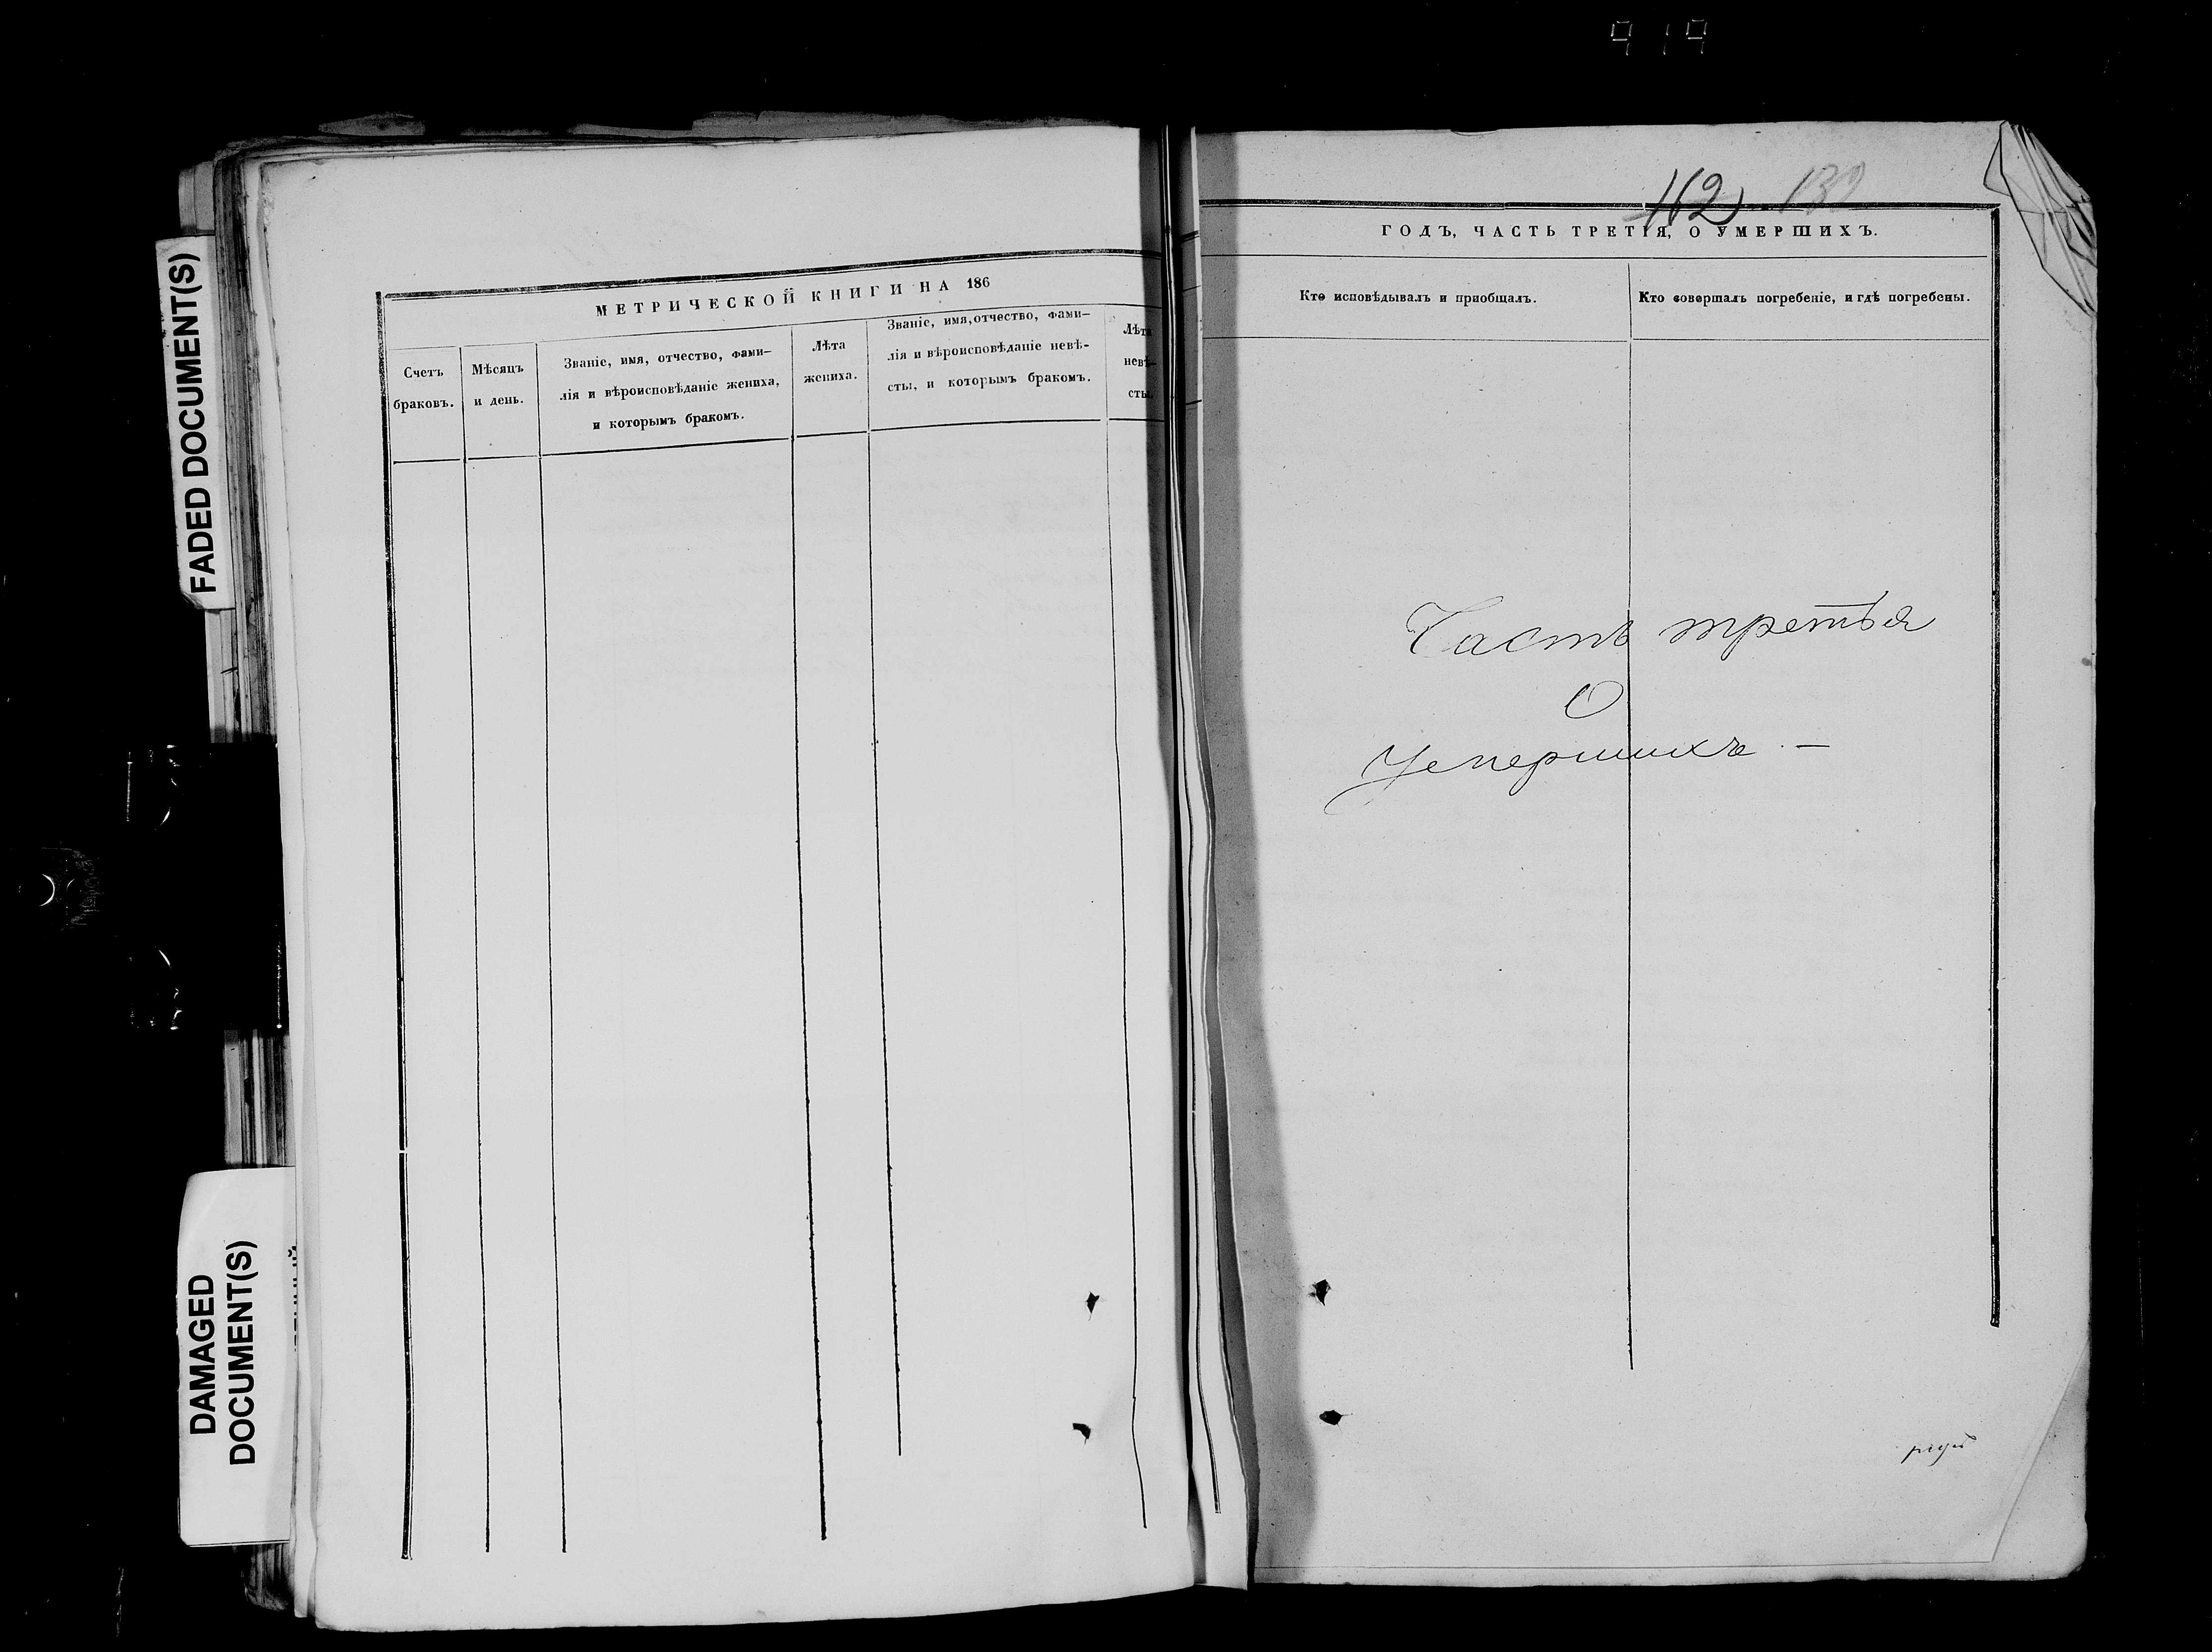 919
FADED DOCUMENT(S)
DAMAGED
DOCUMENT(S)
МЕТРИЧЕСКОЙ КНИГИ НА 186
Счетъ
браковъ.
Мѣсяцъ
и день.
Званіе, имя, отчество, фами-
лія и вѣроисповѣданіе жениха,
и которымъ бракомъ.
Лѣта
жениха.
Званіе, имя, отчество, фами-
лія и вѣроисповѣданіе невѣ-
сты, и которымъ бракомъ.
Лѣта
невѣ-
сты.
162
ГОДЪ, ЧАСТЬ ТРЕТІЯ, О УМЕРШИХЪ.
Кто исповѣдывалъ и пріобщалъ.
Кто совершалъ погребеніе, и гдѣ погребены.
Часть третья
О
Умершихъ. —